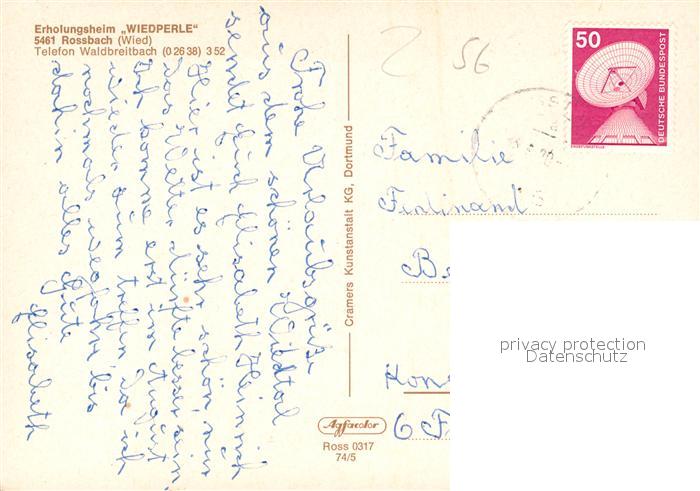 Erholungsheim „WIEDPERLE"
5461 Rossbach (Wied)
Telefon Waldbreitbach (0 26 38) 3 52
Frohe Urlaubsgrüße
aus dem schönen Wiedtal
sendet Euch Elisabeth Heinrich
Hier ist es sehr schön, nur
das Wetter dürfte besser sein
Ich komme erst im August
wieder zum treffen da ich
nochmals wegfahr' bis
dahin alles Gute
Elisabeth
Cramers Kunstanstalt KG, Dortmund
Agfacolor
Ross 0317
74/5
56
50
DEUTSCHE BUNDESPOST
ERDFUNKSTELLE
Familie
Ferdinand
Be
Kon
6 F
privacy protection
Datenschutz